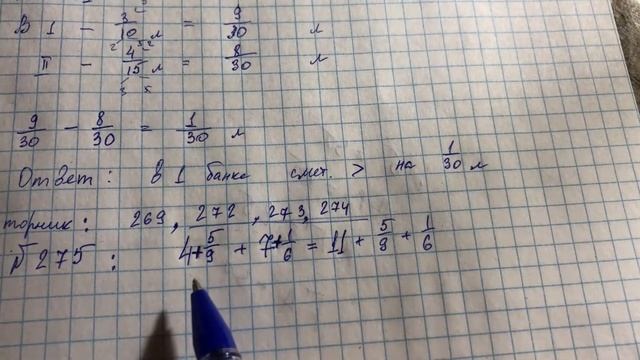 В I - 3/10 л = 9/30 л
II - 4/15 л = 8/30 л
9/30 - 8/30 = 1/30 л
Ответ: в I банке смет. > на 1/30 л
торник: 269, 272, 273, 274
№275: 4+5/9 + 7+1/6 = 11 + 5/9 + 1/6